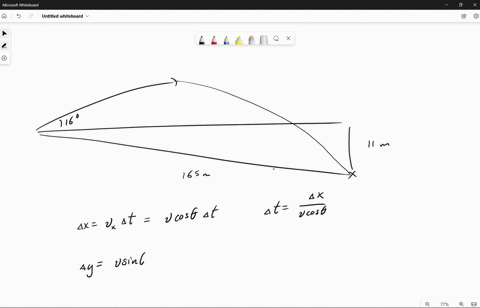 Microsoft Whiteboard
Untitled whiteboard
16°
11 m
165m
Δx = vₓ Δt = v cosθ Δt
Δt = Δx / v cosθ
Δy = v sin
77%